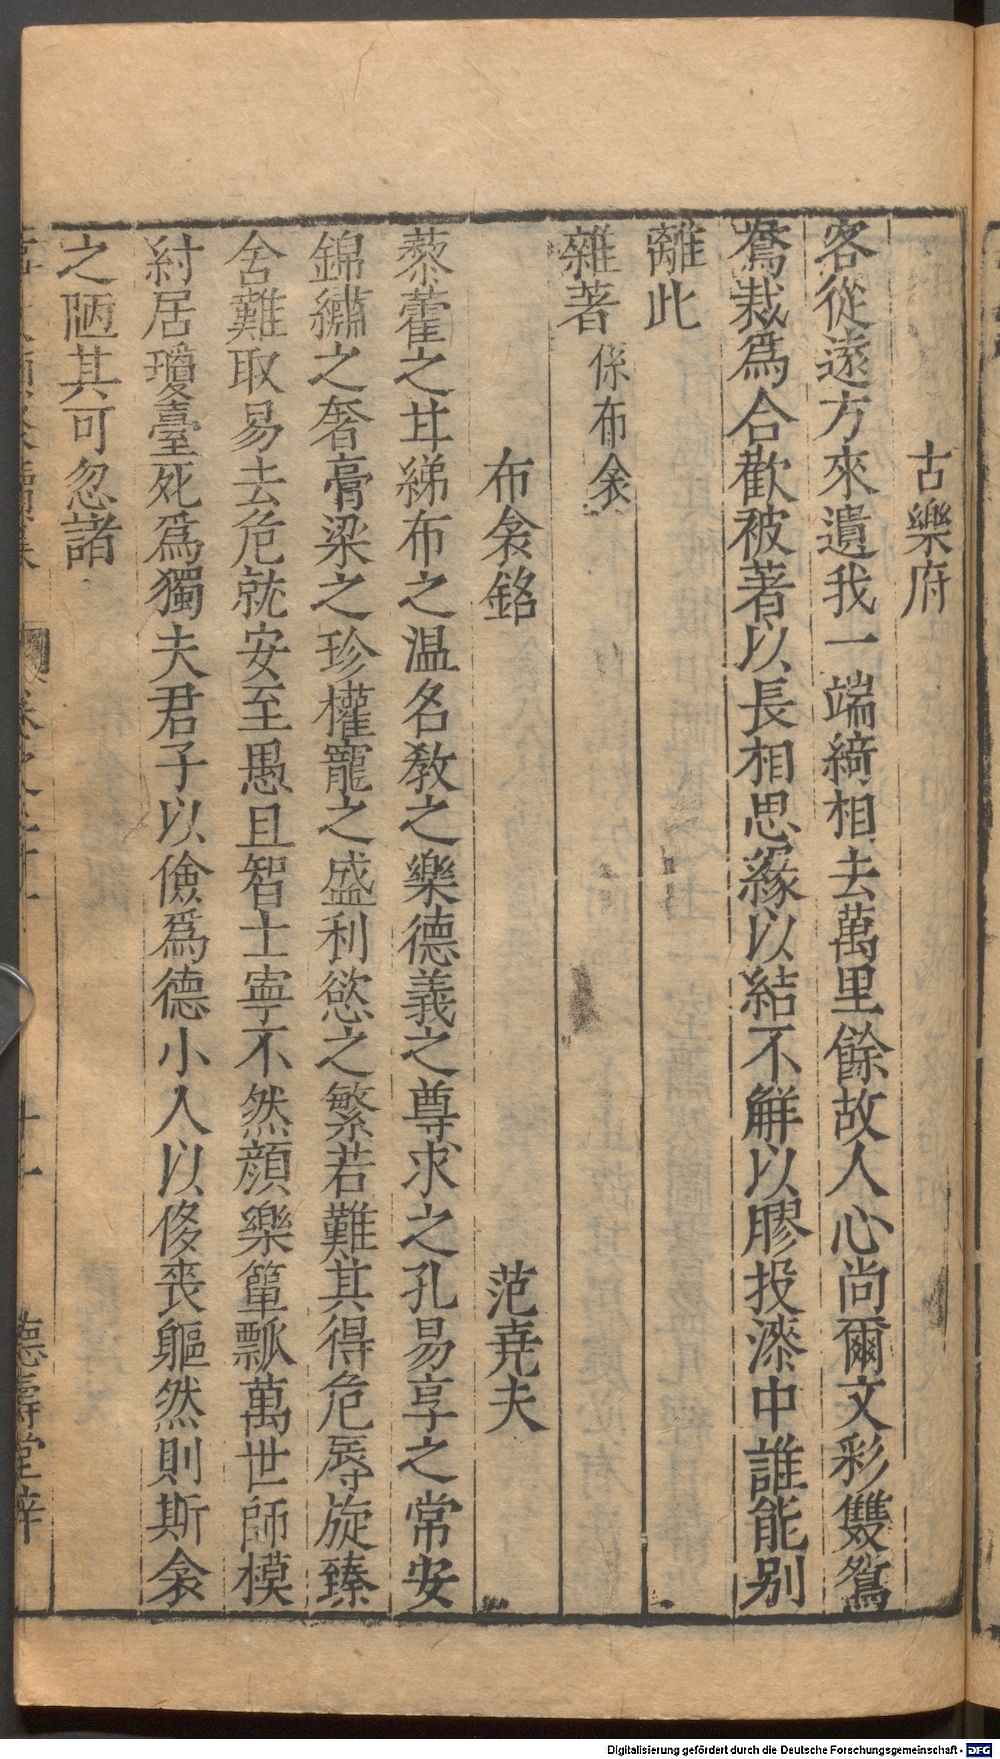 古樂府
客從遠方來遺我一端綺相去萬里餘故人心尚爾文彩雙鴛
鴦裁爲合歡被著以長相思緣以結不解以膠投漆中誰能別
離此
雜著 係布衾
布衾銘 范尭夫
藜藿之甘綈布之温名敎之樂德義之尊求之孔易享之常安
錦繡之奢膏梁之珍權寵之盛利慾之繁若難其得危辱旋臻
舍難取易去危就安至愚且智士寧不然顔樂簞瓢萬世師模
紂居瓊臺死爲獨夫君子以儉爲德小人以侈喪軀然則斯衾
之陋其可忽諸
德壽堂梓
Digitalisierung gefördert durch die Deutsche Forschungsgemeinschaft - DFG